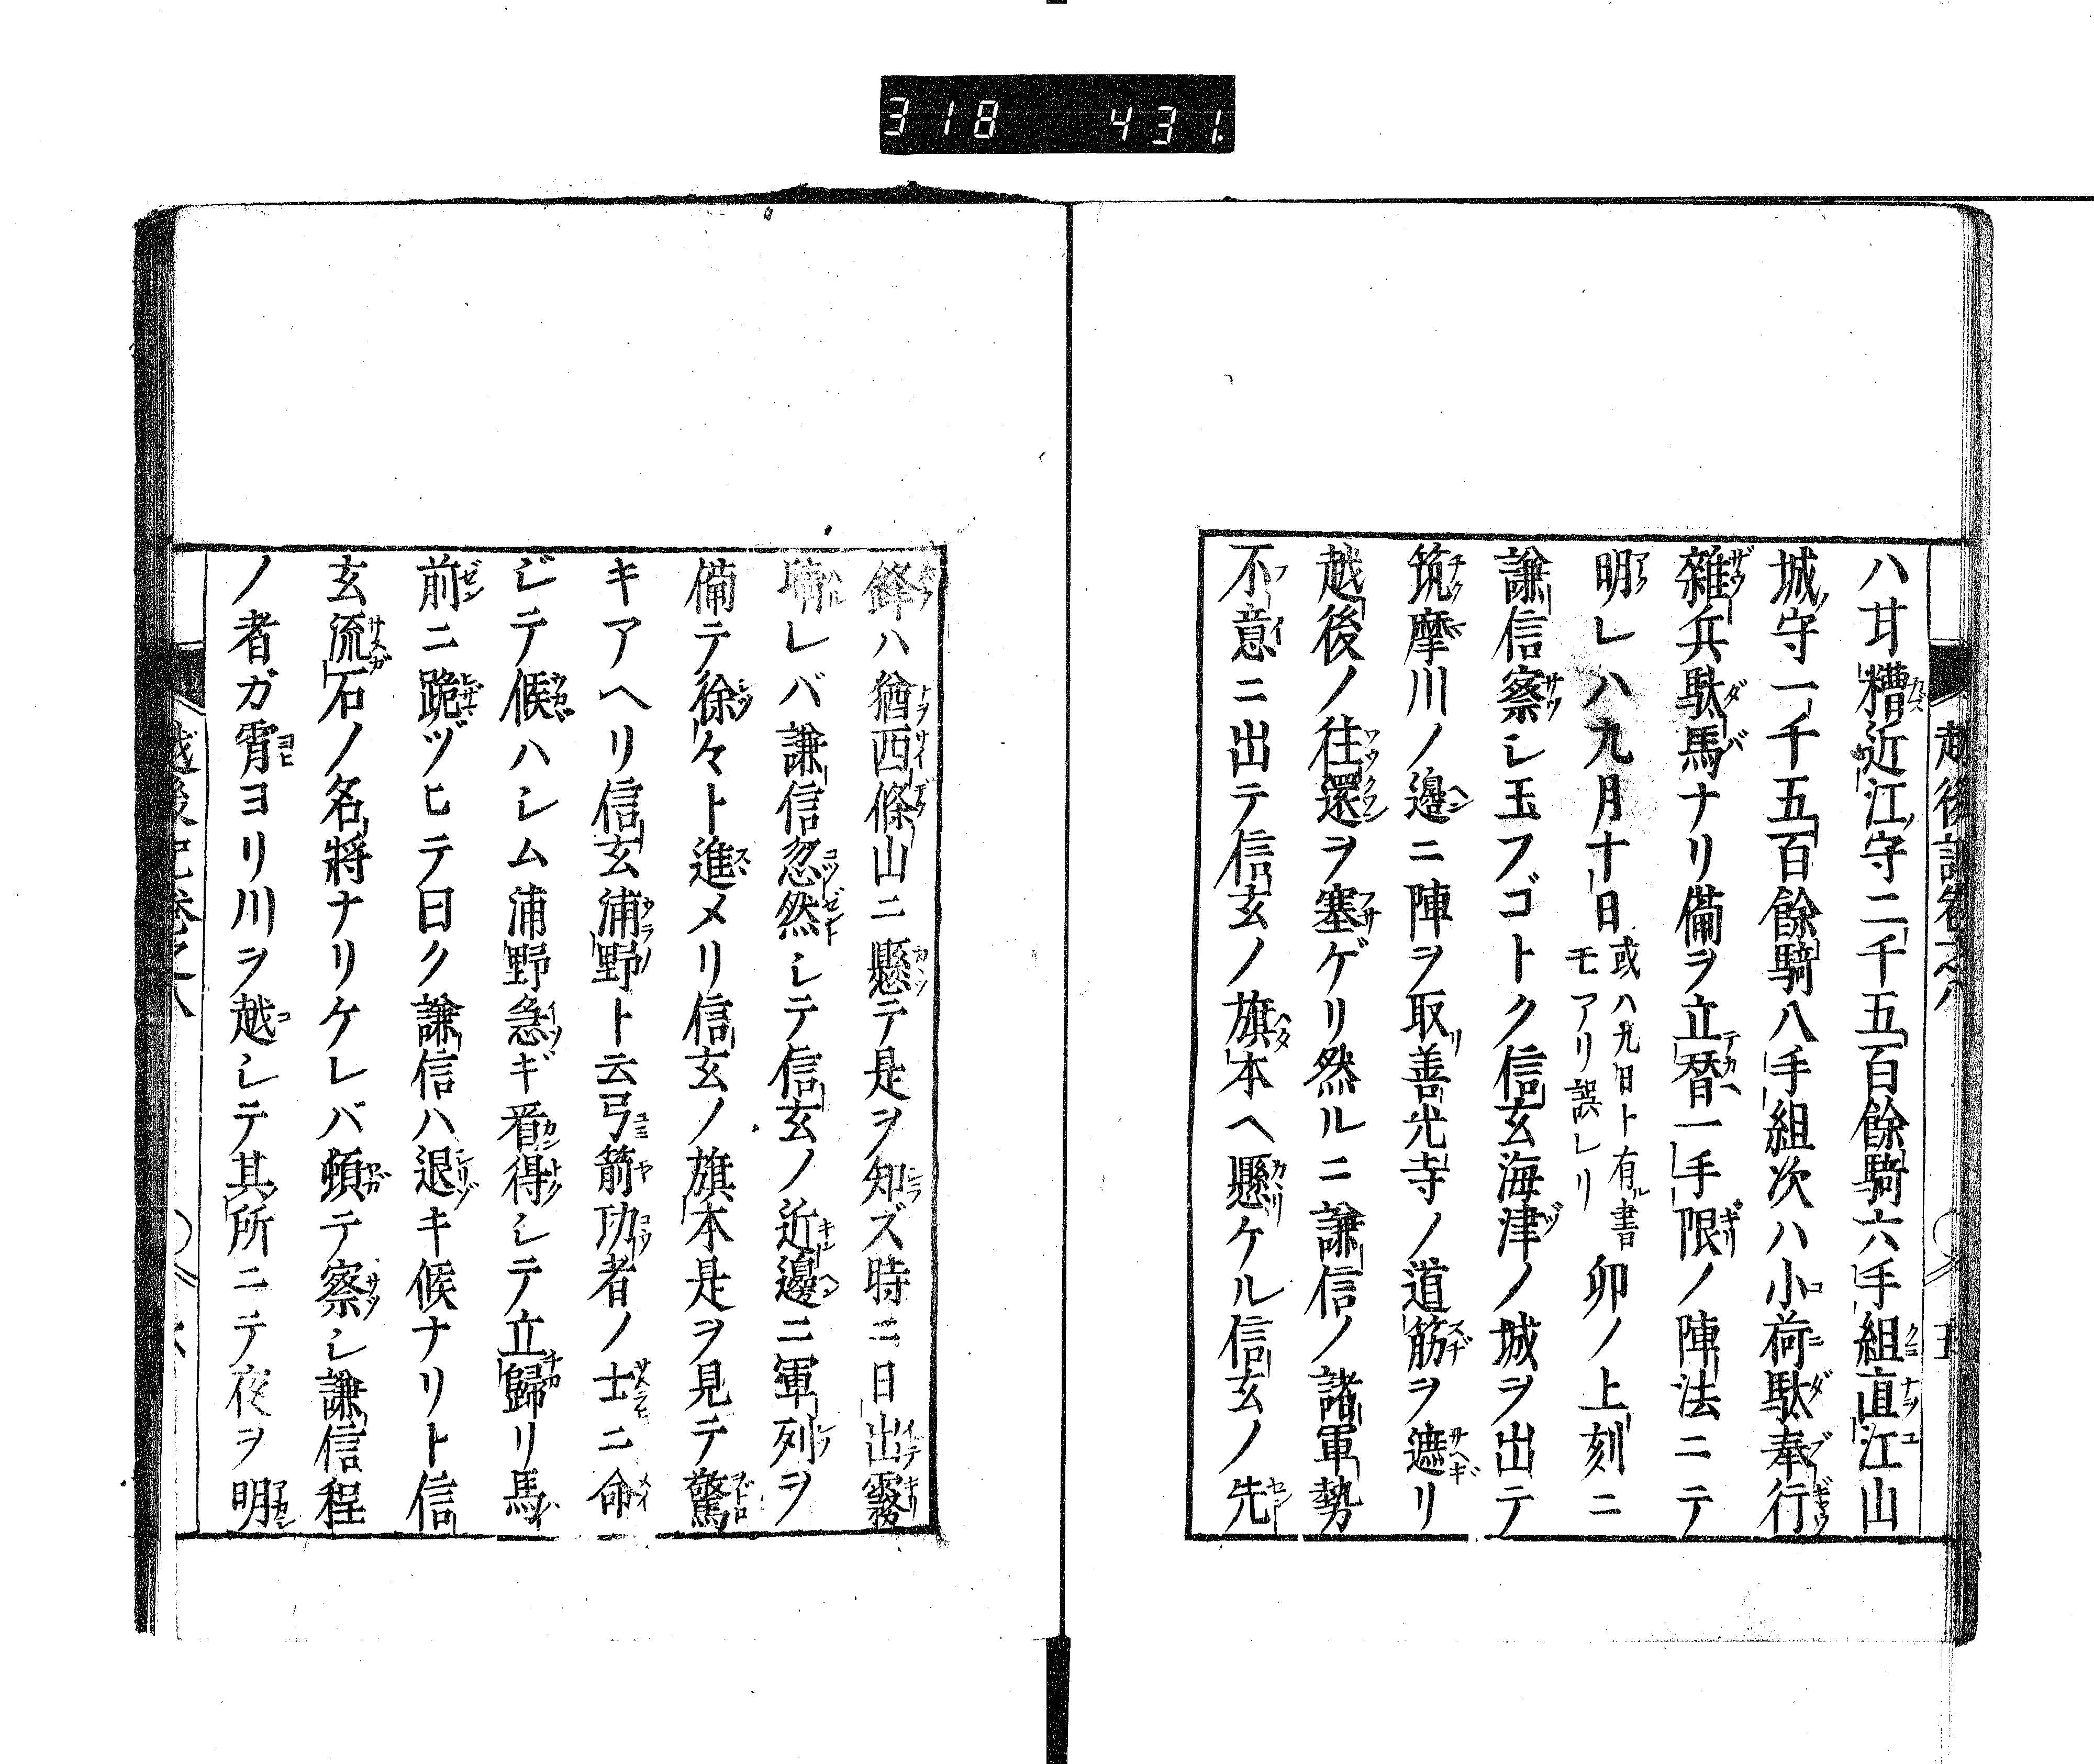 318 431
越後記卷之八 五
ハ甘糟近江守二千五百餘騎六手組直江山
城守一千五百餘騎八手組次ハ小荷駄奉行
雜兵駄馬ナリ備ヲ立替一手限ノ陣法ニテ
明レハ九月十日或ハ九日ト有ル書モアリ誤レリ卯ノ上刻ニ
謙信察シ玉フゴトク信玄海津ノ城ヲ出テ
筑摩川ノ邊ニ陣ヲ取リ善光寺ノ道筋ヲ遮リ
越後ノ往還ヲ塞ゲリ然ルニ謙信ノ諸軍勢
不意ニ出テ信玄ノ旗本ヘ懸ケル信玄ノ先
鋒ハ猶西條山ニ懸テ是ヲ知ズ時ニ日出霧
晴レバ謙信忽然シテ信玄ノ近邊ニ軍列ヲ
備テ徐々ト進メリ信玄ノ旗本是ヲ見テ驚
キアヘリ信玄浦野ト云弓箭功者ノ士ニ命
ジテ候ハシム浦野急ギ看得シテ立歸リ馬
前ニ跪ヅヒテ曰ク謙信ハ退キ候ナリト信
玄流石ノ名將ナリケレバ頓テ察シ謙信程
ノ者ガ霄ヨリ川ヲ越シテ其所ニテ夜ヲ明
越後記卷之八